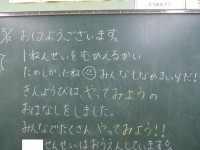 おはようございます。
1ねんせいをむかえるかい
たのしかったね みんなしなのまいりだ!
きんようびは、やってみようの
おはなしをしました。
みんなでたくさん やってみよう!!
せんせいはおうえんしています。